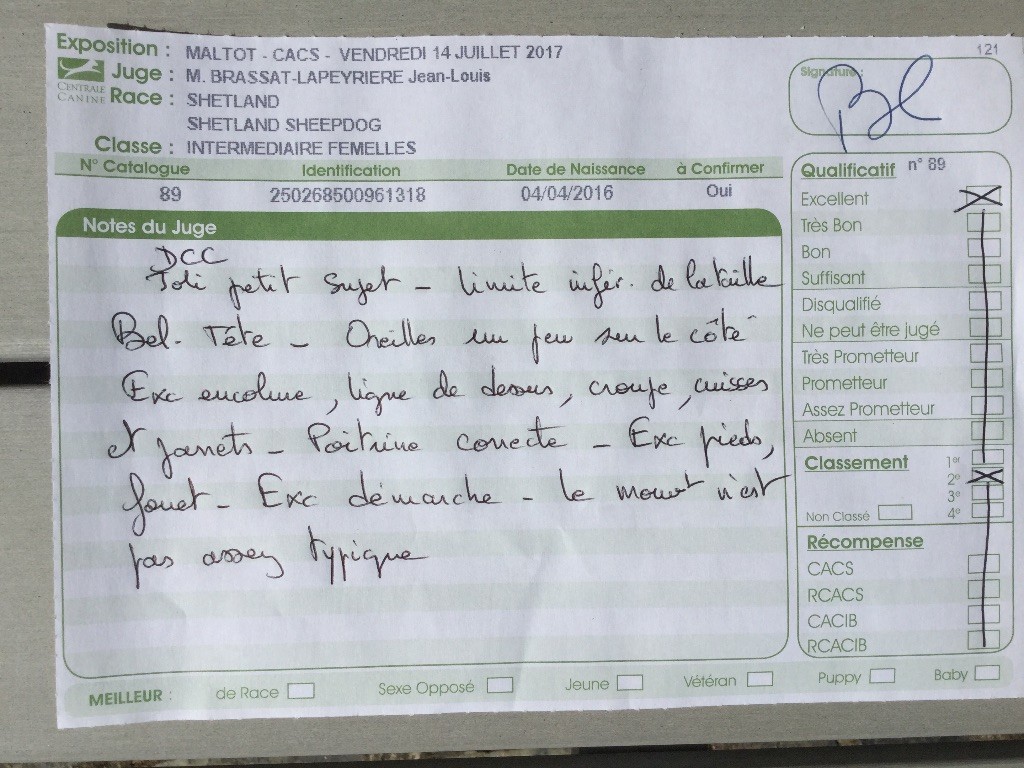 121
Exposition : MALTOT - CACS - VENDREDI 14 JUILLET 2017
Juge : M. BRASSAT-LAPEYRIERE Jean-Louis
CENTRALE CANINE
Race : SHETLAND
SHETLAND SHEEPDOG
Classe : INTERMEDIAIRE FEMELLES
Signature :
N° Catalogue Identification Date de Naissance à Confirmer
89 250268500961318 04/04/2016 Oui
Notes du Juge
DCC
Joli petit sujet - limite infér. de la taille
Bel. Tête - Oreilles un peu sur le côté
Exc encolure, ligne de dessus, croupe, cuisses
et jarrets - Poitrine correcte - Exc pieds,
fouet - Exc démarche - le mouvt n'est
pas assez typique
Qualificatif n° 89
Excellent
Très Bon
Bon
Suffisant
Disqualifié
Ne peut être jugé
Très Prometteur
Prometteur
Assez Prometteur
Absent
Classement 1er
2e
3e
Non Classé 4e
Récompense
CACS
RCACS
CACIB
RCACIB
MEILLEUR : de Race Sexe Opposé Jeune Vétéran Puppy Baby